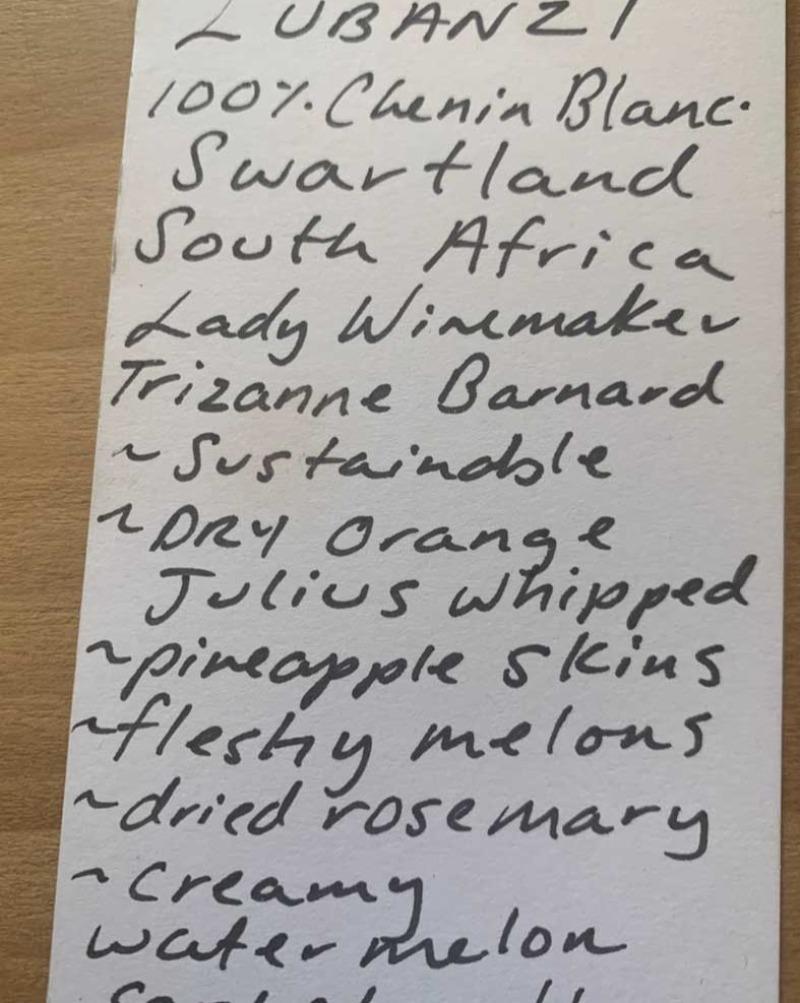 LUBANZI
100%. Chenin Blanc.
Swartland
South Africa
Lady Winemaker
Trizanne Barnard
~ Sustainable
~ DRY Orange
Julius whipped
~pineapple skins
~fleshy melons
~dried rosemary
~ Creamy
watermelon